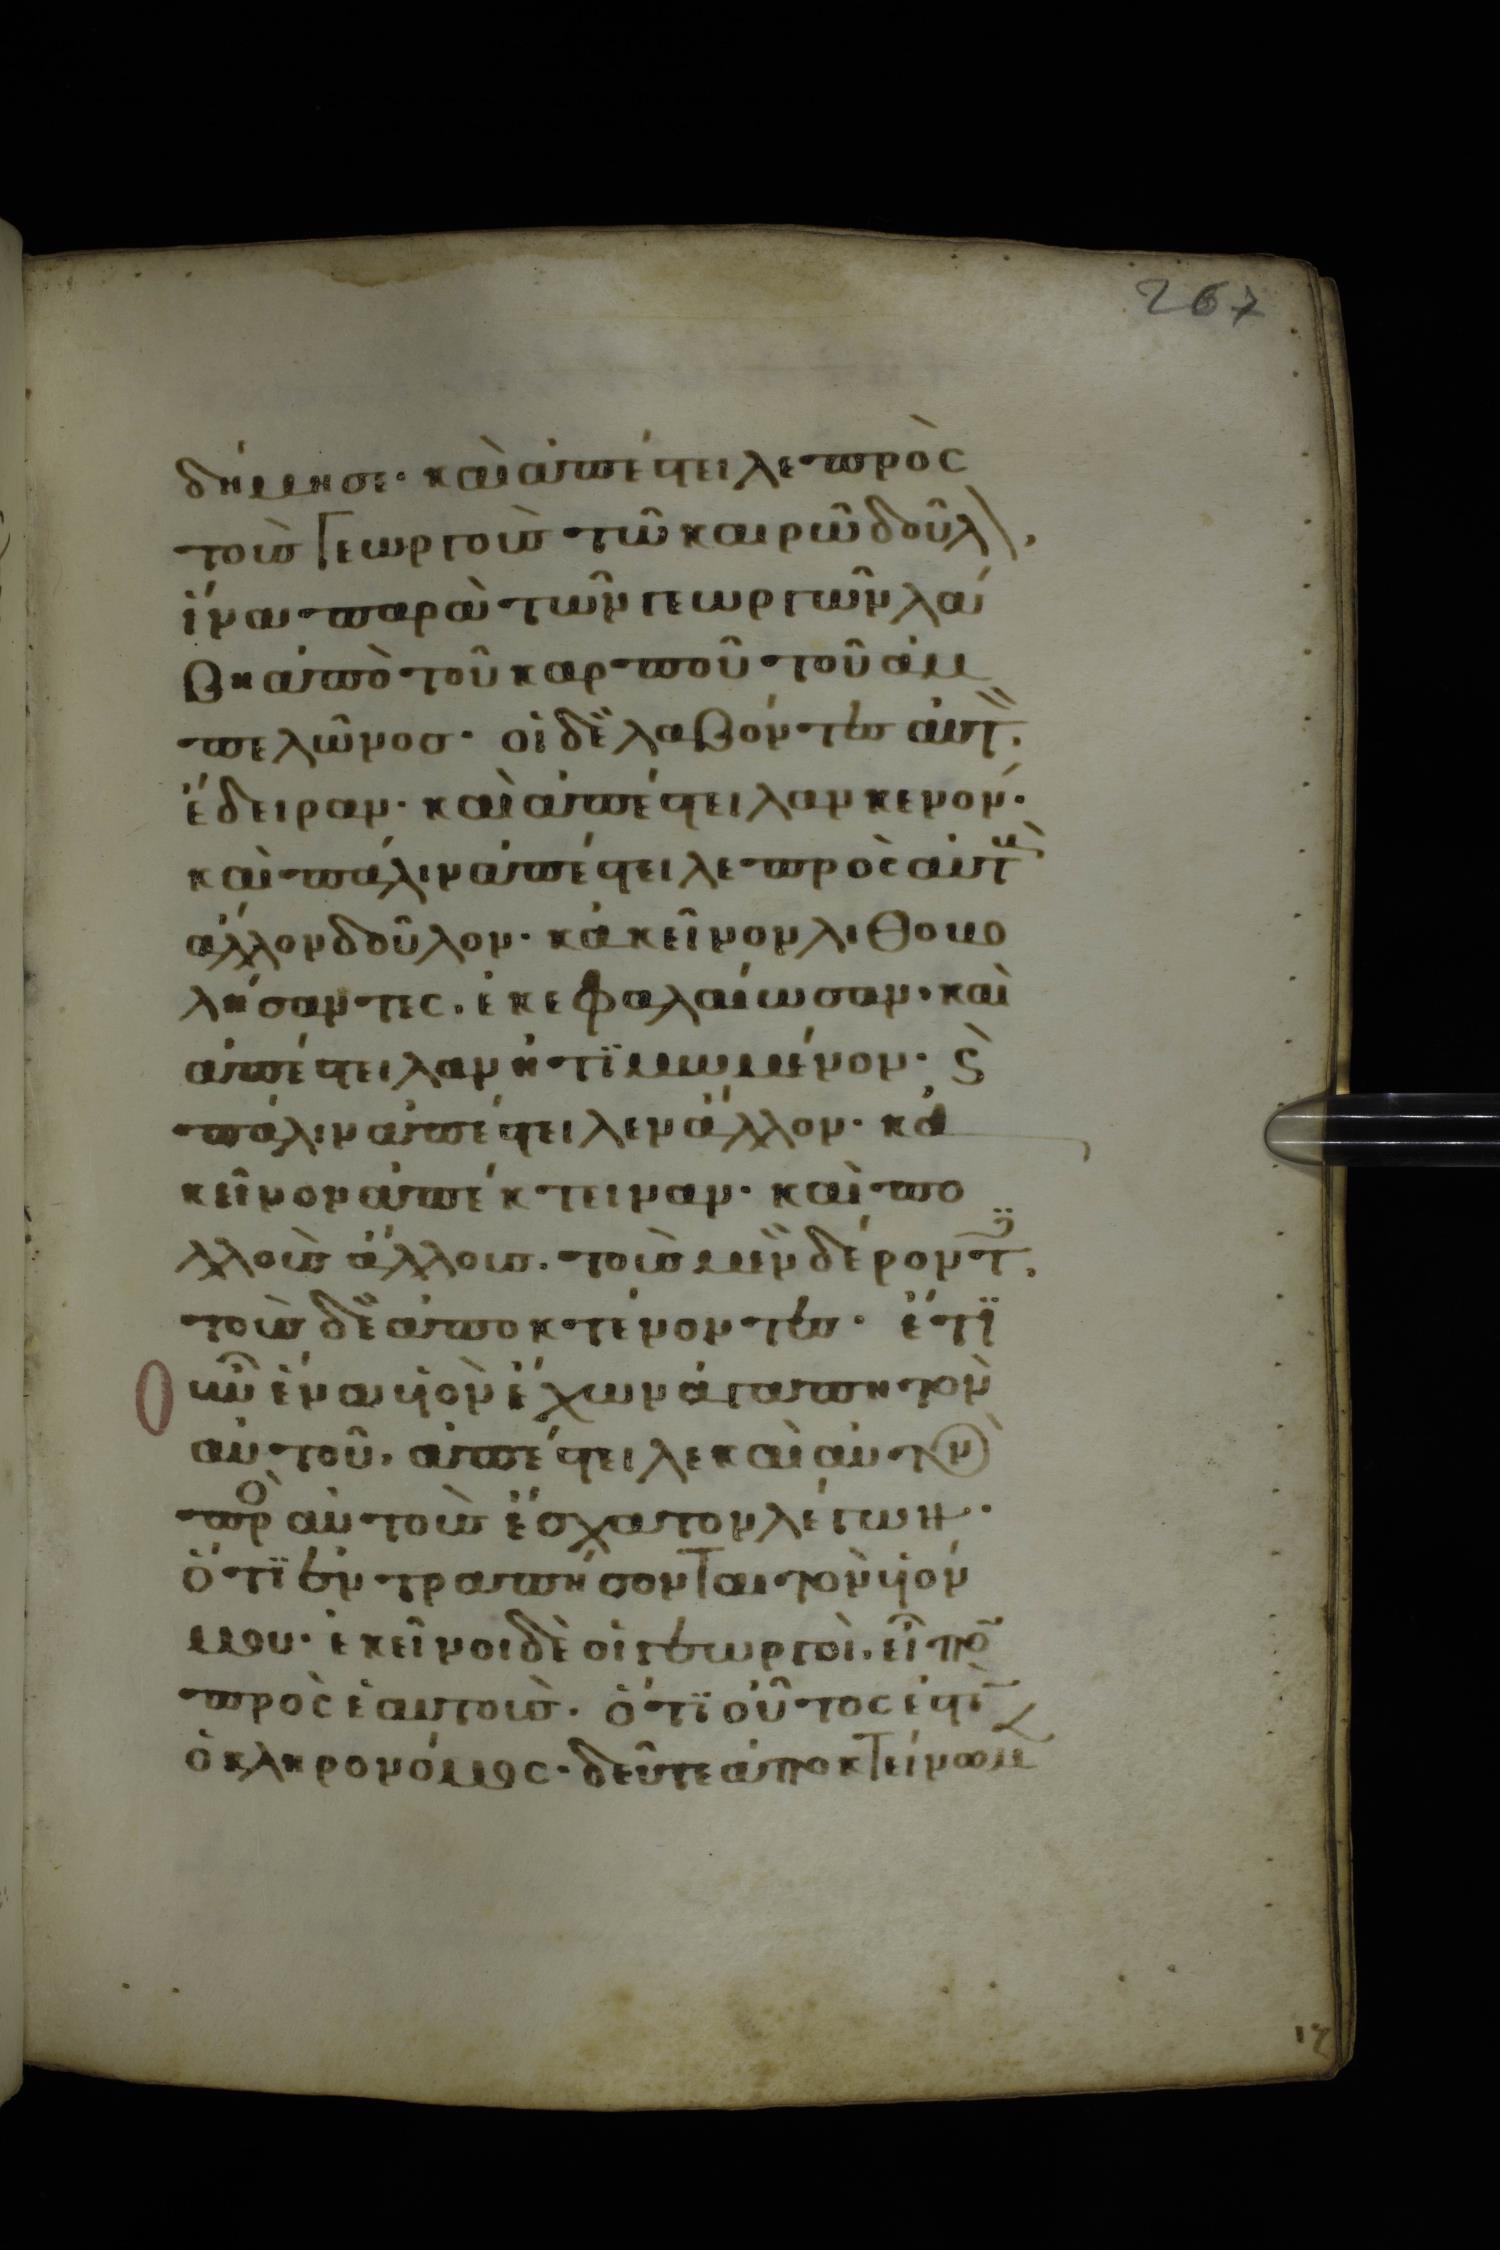 267
δήμησε· καὶ ἀπέστειλε πρὸς
τοὺς γεωργοὺς τῶ καιρῶ δοῦλ\,
ἵνα παρὰ τῶν γεωργῶν λά
βη ἀπὸ τοῦ καρποῦ τοῦ ἀμ
πελῶνοσ· οἱ δὲ λαβόντες αὐτ̏.
ἔδειραν· καὶ ἀπέστειλαν κενόν·
καὶ πάλιν ἀπέστειλε πρὸς αὐτ
ἄλλον δοῦλον· κἀκεῖνον λιθοβο
λήσαντες. ἐκεφαλαίωσαν· καὶ
ἀπέστειλαν ἠτϊμωμένον· ϛ̀
πάλιν ἀπέστειλεν ἄλλον· κἀ
κεῖνον ἀπέκτειναν· καὶ πο
λλοὺς ἄλλους. τοὺς μὲν δέροντ.
τοὺς δὲ ἀποκτένοντες· ἔτϊ
οὖν ἕνα υἱὸν ἔχων ἀγαπητὸν
αὐτοῦ, ἀπέστειλε καὶ αὐτὸν
πρὸ αὐτοὺς ἔσχατον λέγων·
ὅτϊ ἐντραπήσονται τὸν υἱόν
μου· ἐκεῖνοι δὲ οἱ γεωργοὶ. εἶπο̃
πρὸς ἑαυτοὺς· ὅτϊ οὗτος ἐστὶ̃
ὁ κληρονόμος· δεῦτε ἀποκτείνωμ
17